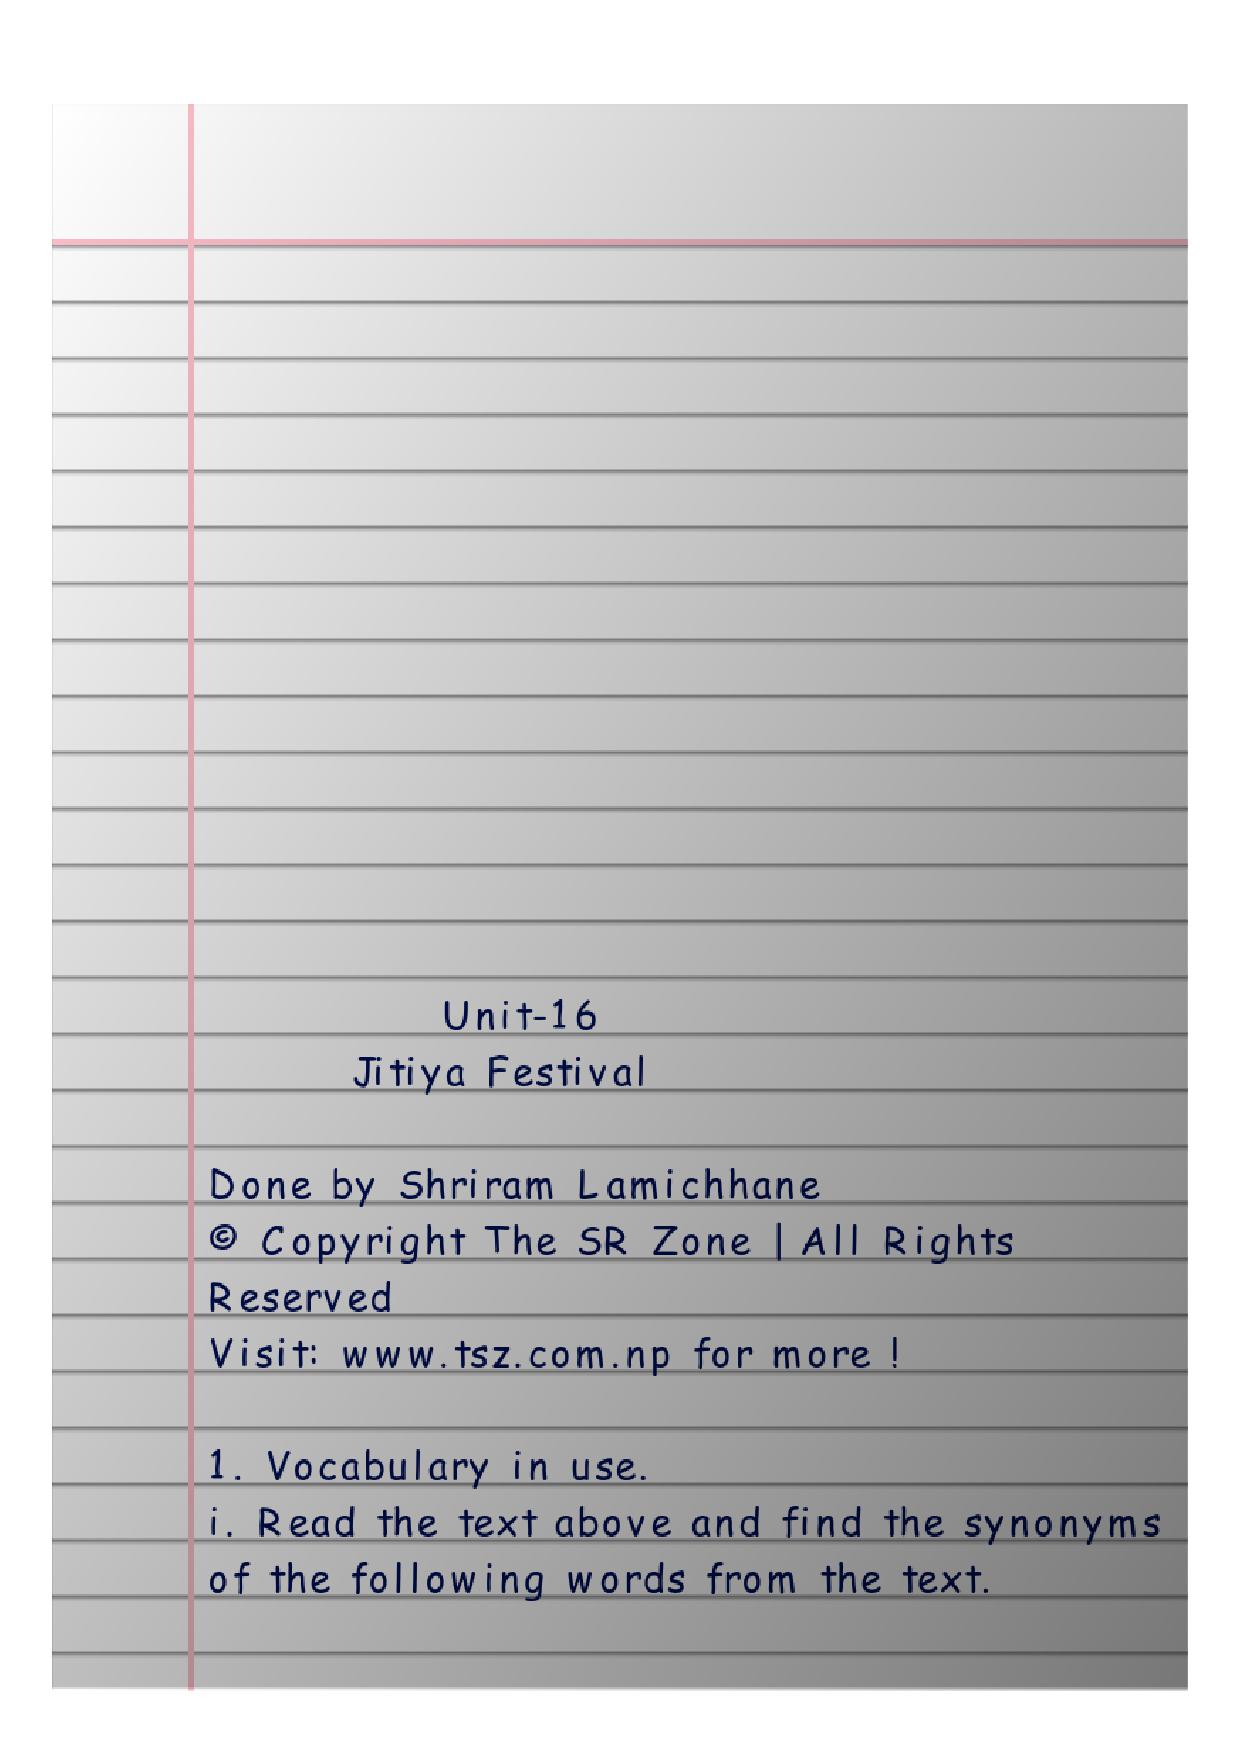 Unit-16
Jitiya Festival
Done by Shriram Lamichhane
© Copyright The SR Zone | All Rights
Reserved
Visit: www.tsz.com.np for more !
1. Vocabulary in use.
i. Read the text above and find the synonyms
of the following words from the text.